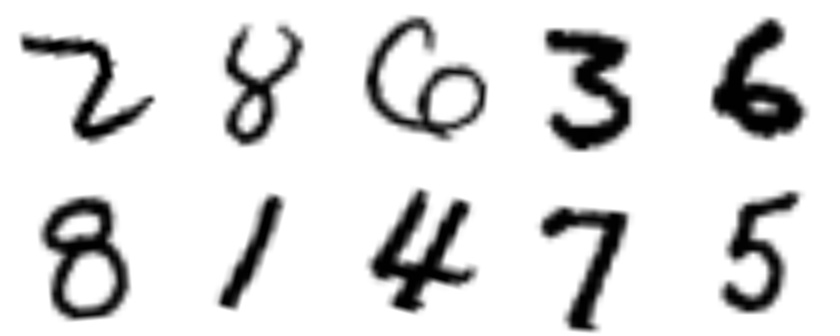 2 8 6 3 6
8 1 4 7 5